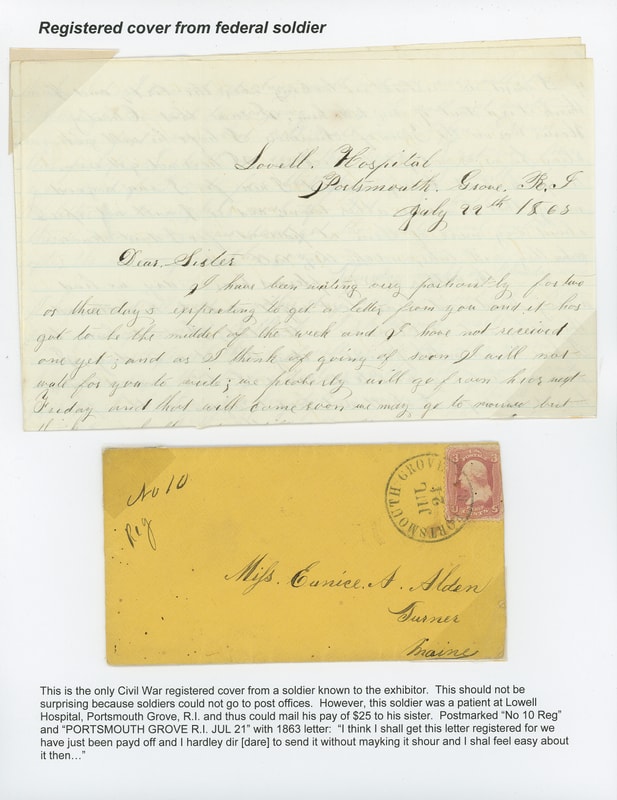 Registered cover from federal soldier
Lovell. Hospital
Portsmouth. Grove. R. I
July 22th 1863
Dear Sister
I have been waiting very patiently for two
or three days expecting to get a letter from you and it has
got to be the middel of the week and I have not received
one yet; and as I think of going of soon I will not
wate for you to write; we peoberly will go from here next
Friday and that will come soon we may go to but
No 10
Reg
PORTSMOUTH GROVE
JUL
21
3 3
Miss. Eunice. A. Alden
Turner
Maine
This is the only Civil War registered cover from a soldier known to the exhibitor. This should not be
surprising because soldiers could not go to post offices. However, this soldier was a patient at Lowell
Hospital, Portsmouth Grove, R.I. and thus could mail his pay of $25 to his sister. Postmarked “No 10 Reg”
and “PORTSMOUTH GROVE R.I. JUL 21” with 1863 letter: “I think I shall get this letter registered for we
have just been payd off and I hardley dir [dare] to send it without mayking it shour and I shal feel easy about
it then…”